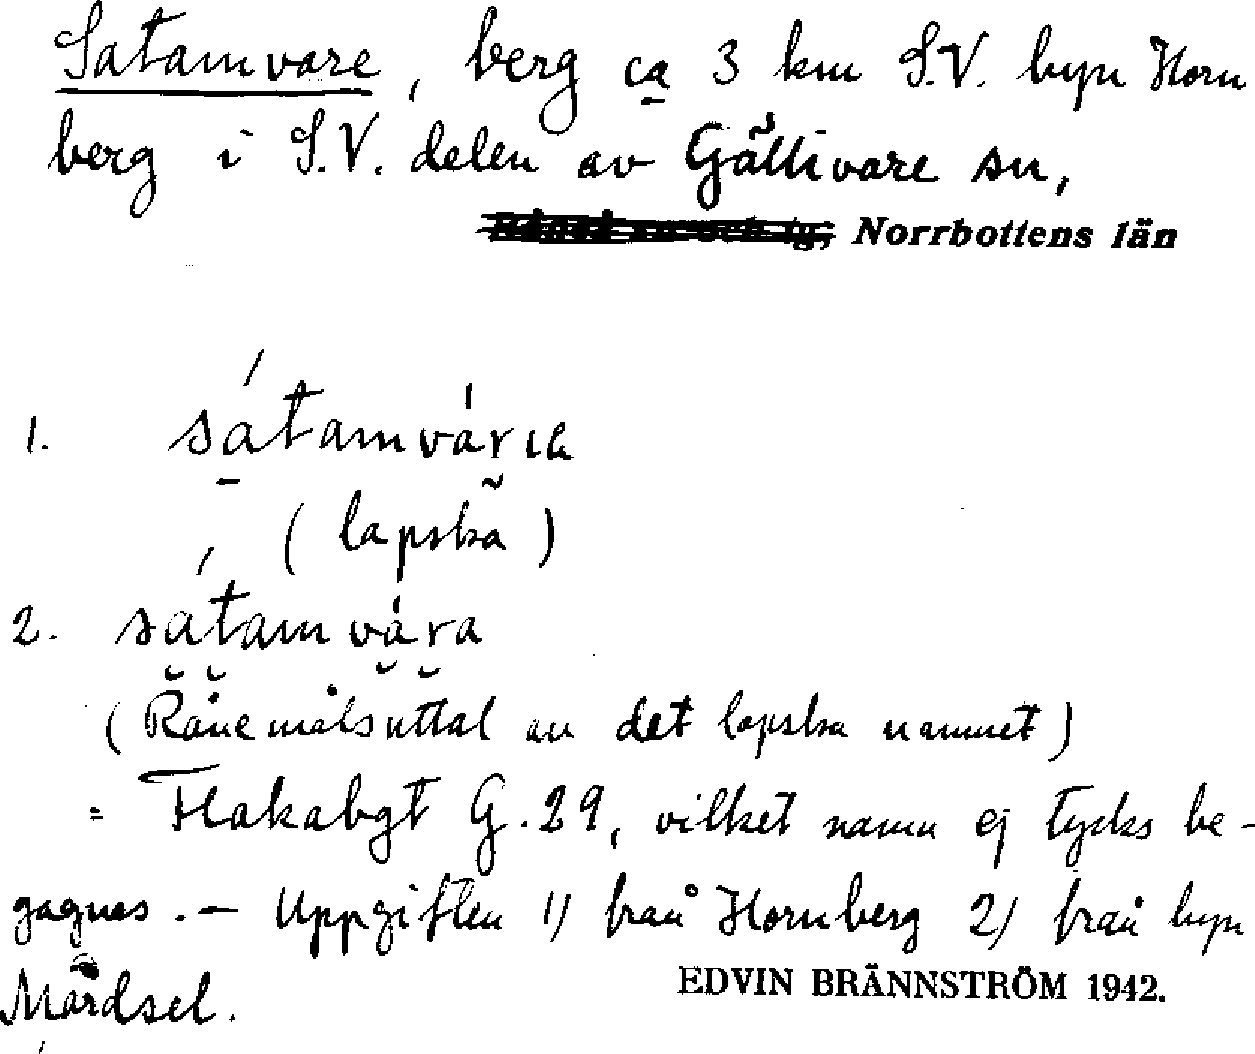 Satamvare, berg ca 3 km S.V. byn Horn
berg i S.V. delen av Gällivare sn,
Norrbottens län
1. sátamvárıa
(lapska)
2. sátamvára
(Råne målsuttal av det lapska namnet)
= Flakabgt G.29, vilket namn ej tycks be-
gagnas. — Uppgiften 1) från Hornberg 2) från byn
Mårdsel.
EDVIN BRÄNNSTRÖM 1942.